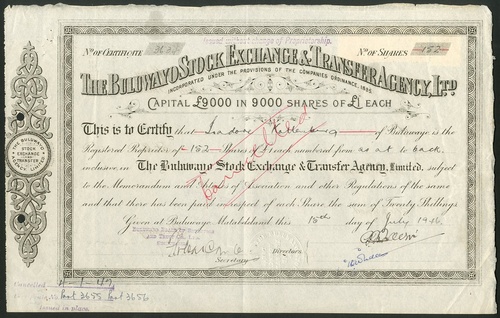 Issued without change of Proprietorship.
No. of Certificate
No. of Shares 152
The Buluwayo Stock Exchange & Transfer Agency, Ltd
Incorporated under the provisions of the Companies Ordinance, 1895
Capital £9000 in 9000 shares of £1 each
This is to Certify that Isadore of Bulawayo is the
Registered Proprietor of 152 Shares of £1 each numbered from as at to back
inclusive, in The Buluwayo Stock Exchange & Transfer Agency, Limited, subject
to the Memorandum and Articles of Association and other Regulations of the same
and that there has been paid in respect of each Share, the Sum of Twenty Shillings
Cancelled
Given at Buluwayo Matabeleland this 15th day of July 1946
Directors
Secretary
The Buluwayo Stock Exchange & Transfer Agency Limited
Cancelled 4-1-47
3655 3656
issued in place